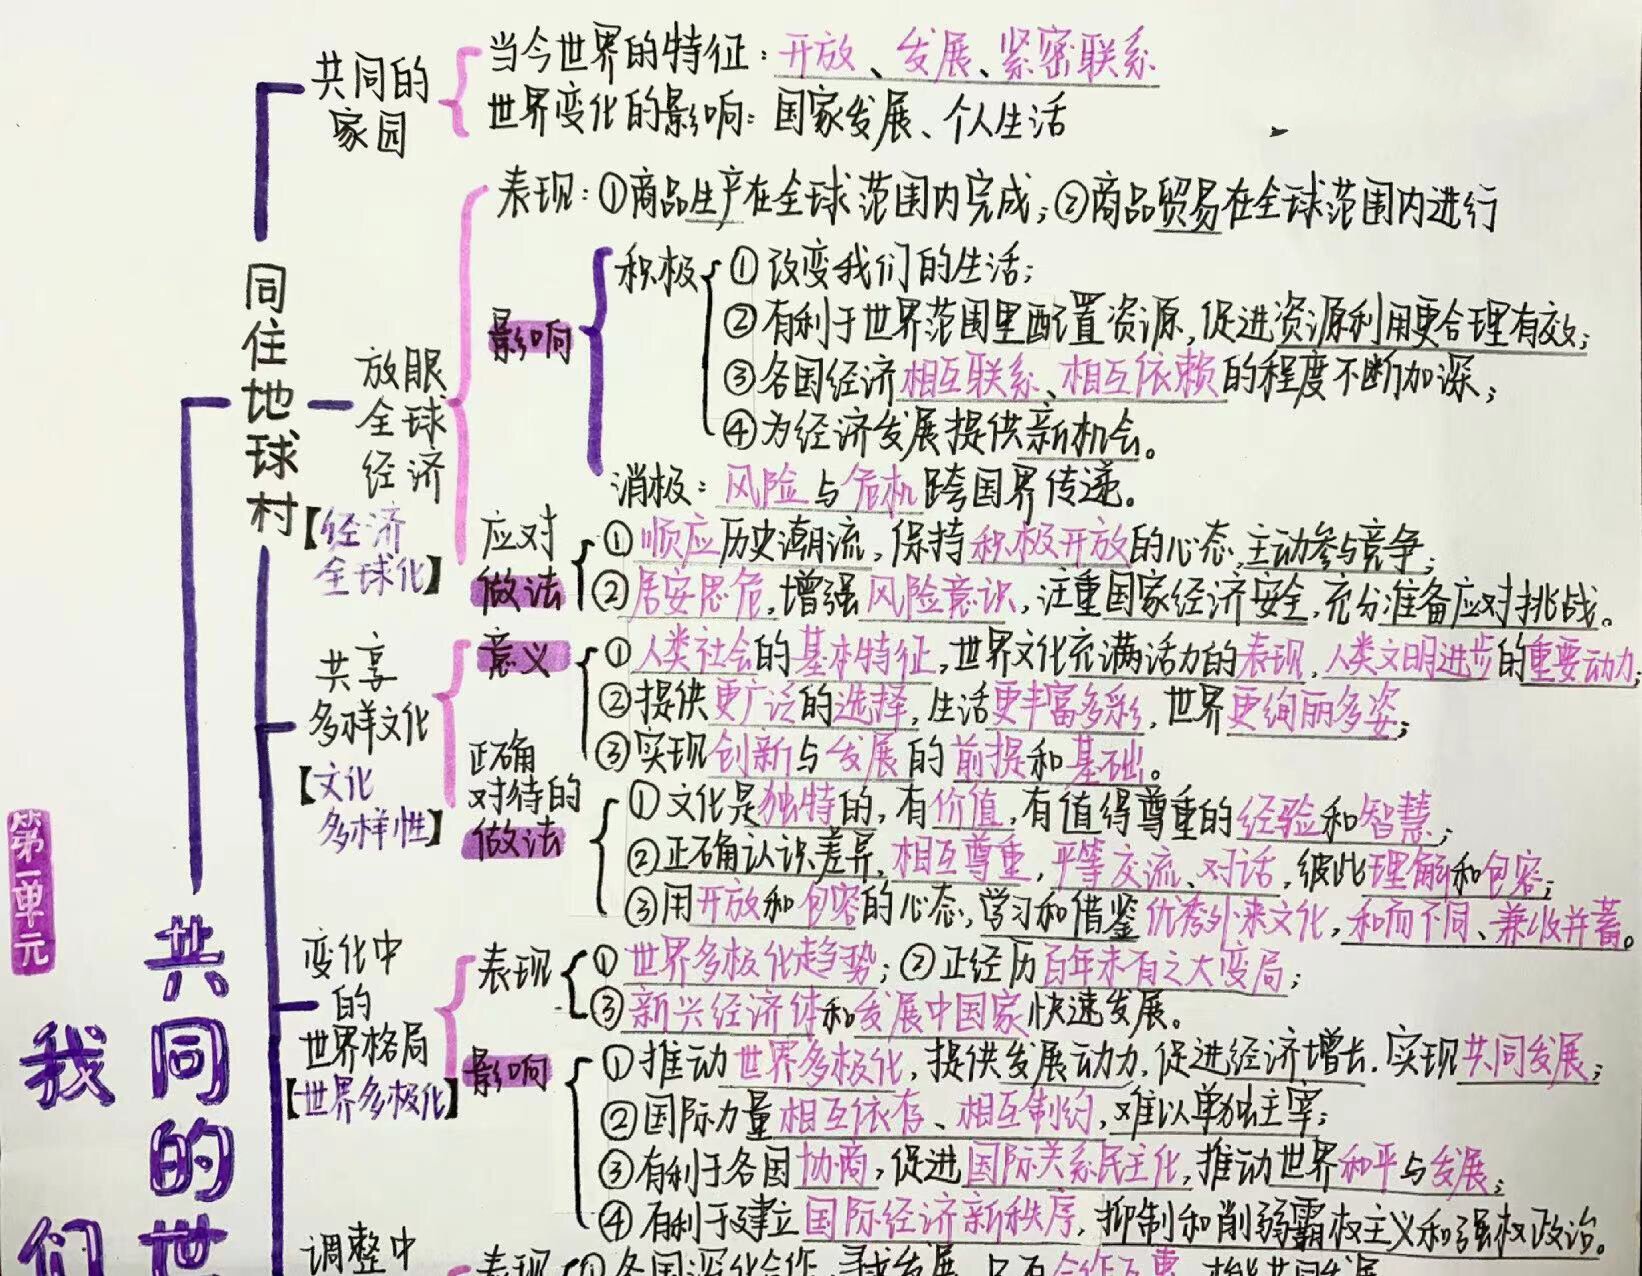 第一单元
我们
共同的世
同住地球村
共同的
家园
当今世界的特征：开放、发展、紧密联系
世界变化的影响：国家发展、个人生活
放眼
全球
经济
【经济
全球化】
表现：①商品生产在全球范围内完成；②商品贸易在全球范围内进行
影响
积极
①改变我们的生活；
②有利于世界范围里配置资源，促进资源利用更合理有效；
③各国经济相互联系、相互依赖的程度不断加深；
④为经济发展提供新机会。
消极：风险与危机跨国界传递。
应对
做法
①顺应历史潮流，保持积极开放的心态，主动参与竞争；
②居安思危，增强风险意识，注重国家经济安全，充分准备应对挑战。
共享
多样文化
【文化
多样性】
意义
①人类社会的基本特征，世界文化充满活力的表现，人类文明进步的重要动力；
②提供更广泛的选择，生活更丰富多彩，世界更绚丽多姿；
③实现创新与发展的前提和基础。
正确
对待的
做法
①文化是独特的，有价值，有值得尊重的经验和智慧；
②正确认识差异，相互尊重，平等交流、对话，彼此理解和包容；
③用开放和包容的心态，学习和借鉴优秀外来文化，和而不同、兼收并蓄。
变化中
的
世界格局
【世界多极化】
表现
①世界多极化趋势；②正经历百年未有之大变局；
③新兴经济体和发展中国家快速发展。
影响
①推动世界多极化，提供发展动力，促进经济增长，实现共同发展；
②国际力量相互依存、相互制约，难以单独主宰；
③有利于各国协商，促进国际关系民主化，推动世界和平与发展；
④有利于建立国际经济新秩序，抑制和削弱霸权主义和强权政治。
调整中
表现
①各国深化合作，寻求发展，只有合作互惠，才能共同发展